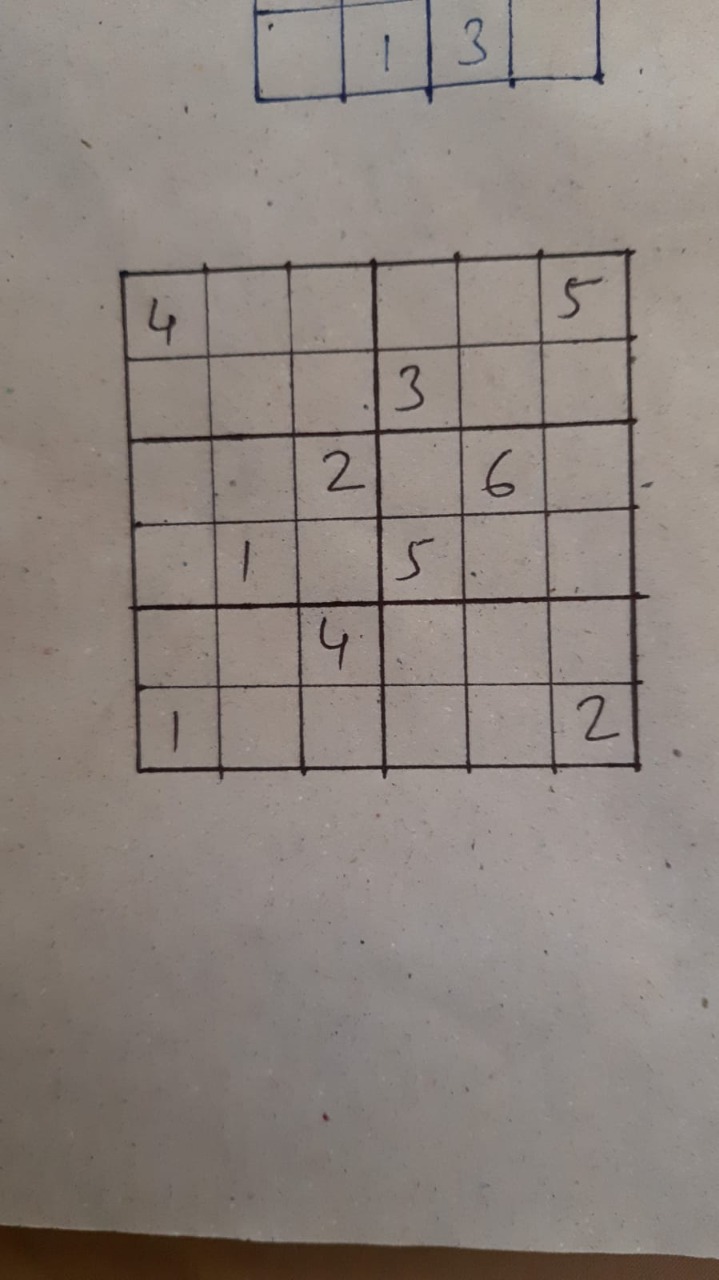 1 3
4 5
3
2 6
1 5
4
1 2